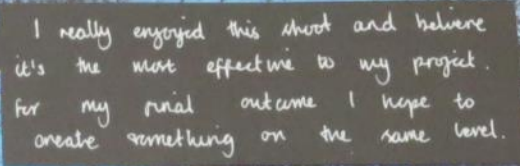 I really enjoyed this shoot and believe
it's the most effective to my project.
For my final outcome I hope to
create something on the same level.